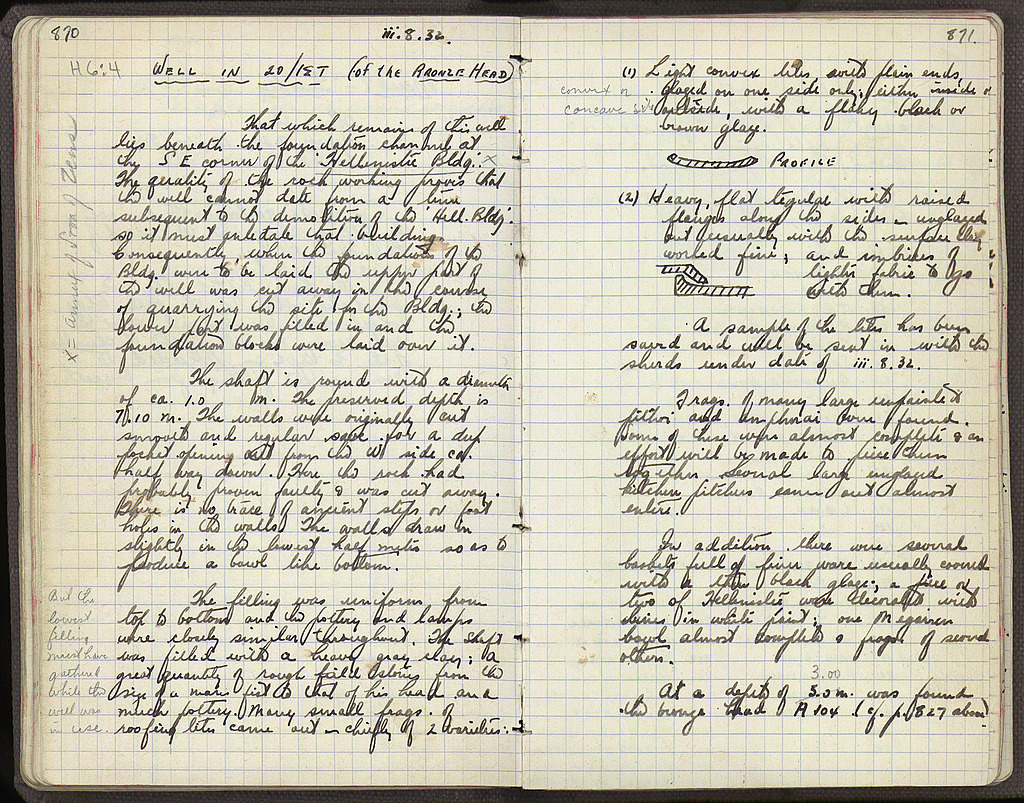 870
iii.8.32.
H6:4 WELL IN 20/ΙΣΤ (of the BRONZE HEAD)
That which remains of this well
lies beneath the foundation channel at
the SE corner of the 'Hellenistic Bldg.' x
The quality of the rock working proves that
the well cannot date from a time
subsequent to the demolition of the 'Hell. Bldg'.
so it must antedate that building.
Consequently when the foundations of the
Bldg. were to be laid the upper part of
the well was cut away in the course
of quarrying the site for the Bldg.; the
lower part was filled in and the
foundation blocks were laid over it.
x = annex of Stoa of Zeus
The shaft is round with a diameter
of ca. 1.0 m. The preserved depth is
7.10 m. The walls were originally cut
smooth and regular save for a deep
pocket opening out from the W side ca.
half way down. Here the rock had
probably proven faulty & was cut away.
There is no trace of ancient steps or foot
holes in the walls. The walls draw in
slightly in the lowest half metre so as to
produce a bowl like bottom.
The filling was uniform from
top to bottom and the pottery and lamps
were closely similar throughout. The shaft
was filled with a heavy gray clay; a
great quantity of rough field stones from the
size of a man's fist to that of his head and
much pottery. Many small frags. of
roofing tiles came out – chiefly of 2 varieties:–
But the
lowest
filling
must have
gathered
while the
well was
in use.
871.
(1) Light convex tiles, with plain ends,
glazed on one side only; either inside or
outside, with a flaky black or
brown glaze.
convex or
concave side
PROFILE
(2) Heavy, flat tegulae with raised
flanges along the sides – unglazed
but usually with the surface clay
worked fine; and imbrices of
lighter fabric to go
with them.
A sample of the tiles has been
saved and will be sent in with the
sherds under date of iii.8.32.
Frags. of many large unpainted
pithoi and amphorai were found.
Some of these were almost complete & an
effort will be made to piece them
together. Several large unglazed
kitchen pitchers came out almost
entire.
In addition there were several
baskets full of finer ware usually covered
with a thin black glaze; a piece or
two of Hellenistic ware decorated with
vines in white paint; one Megarian
bowl almost complete & frags. of several
others.
3.00
At a depth of 5.0 m. was found
the bronze head A 104 (cf. p. 827 above)